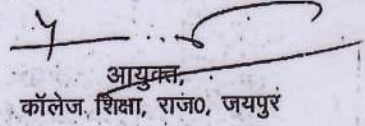 आयुक्त,
कॉलेज शिक्षा, राज0, जयपुर